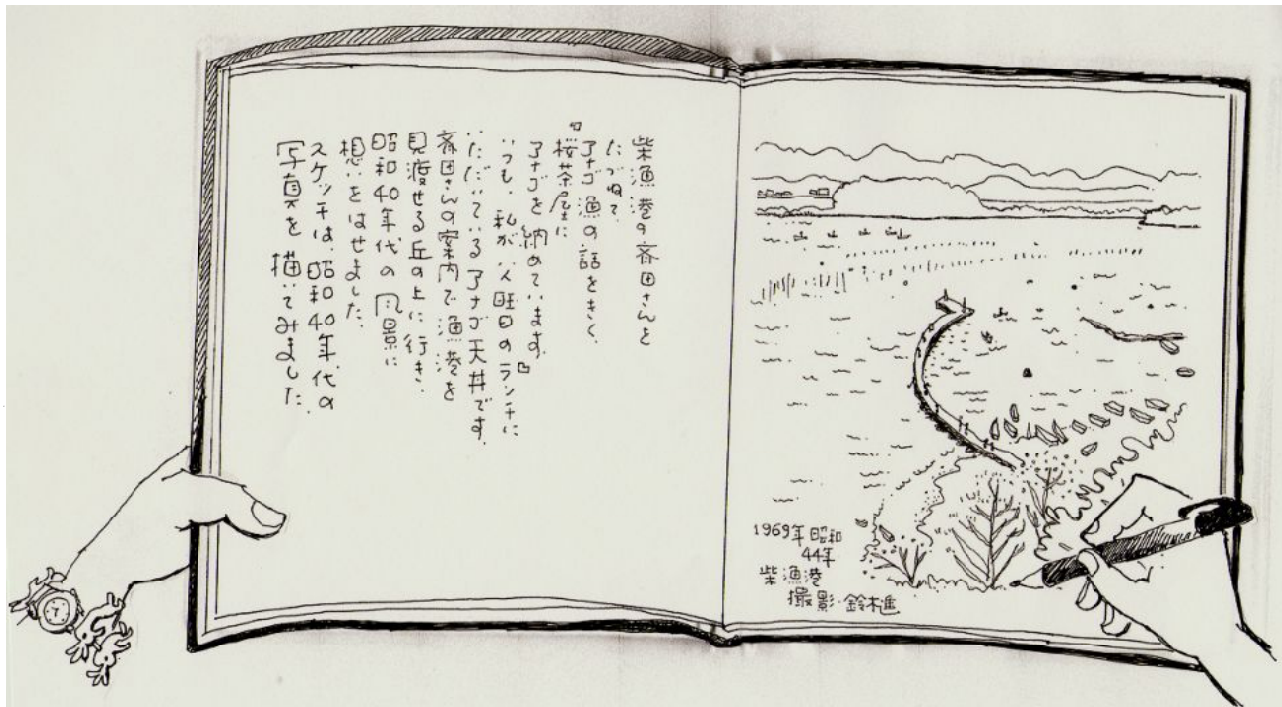 柴漁港の斉田さんを
たづねて、
アナゴ漁の話をきく、
『桜茶屋に
アナゴを納めています。』
いつも、私が八旺日のランチに
いただいているアナゴ天丼です。
斉田さんの案内で漁港を
見渡せる丘の上に行き、
昭和40年代の風景に
想いをはせました。
スケッチは、昭和40年代の、
写真を描いてみました
1969年昭和
44年
柴漁港
撮影・鈴木